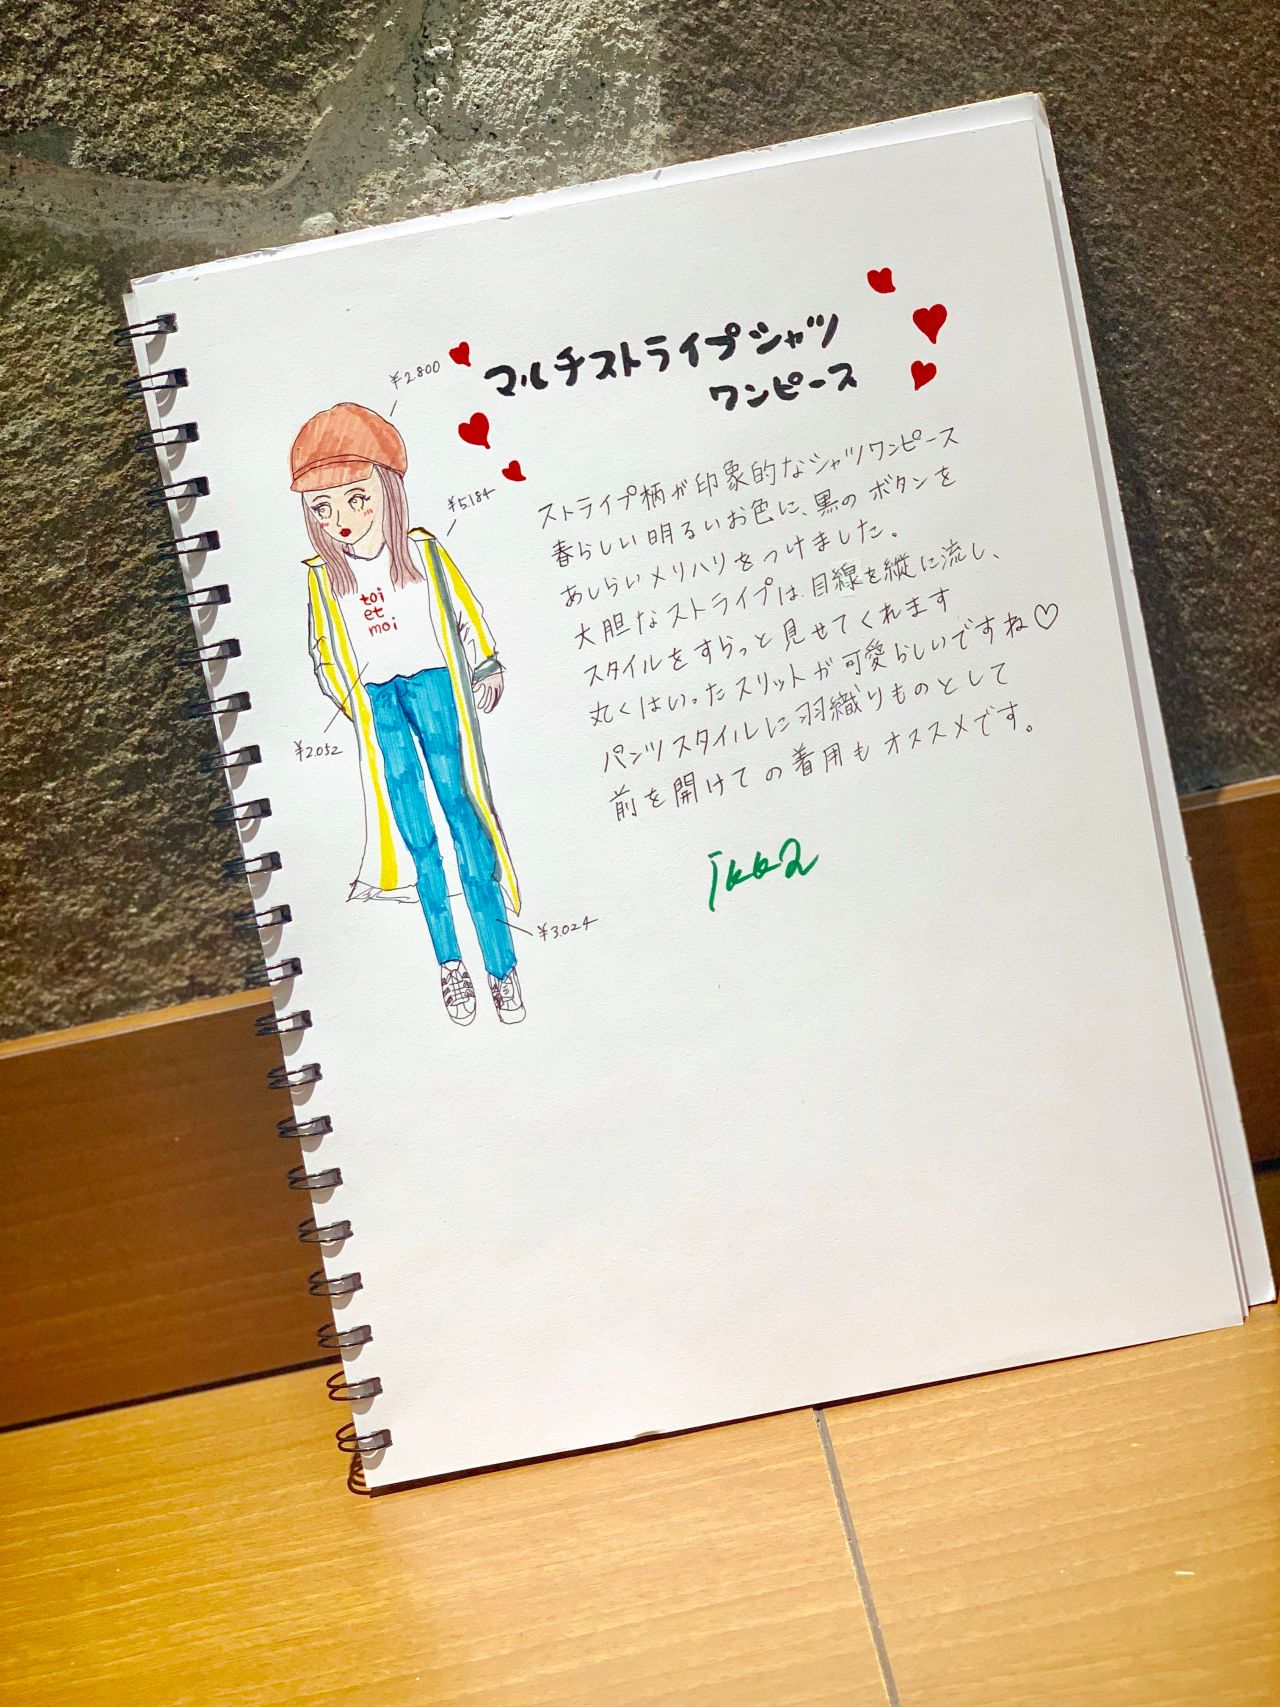 マルチストライプシャツ
ワンピース
¥2.800
¥5.184
toi
et
moi
¥2.052
¥3.024
ストライプ柄が印象的なシャツワンピース
春らしい明るいお色に、黒のボタンを
あしらいメリハリをつけました。
大胆なストライプは、目線を縦に流し、
スタイルをすらっと見せてくれます
丸くはいったスリットが可愛らしいですね♡
パンツスタイルに羽織りものとして
前を開けての着用もオススメです。